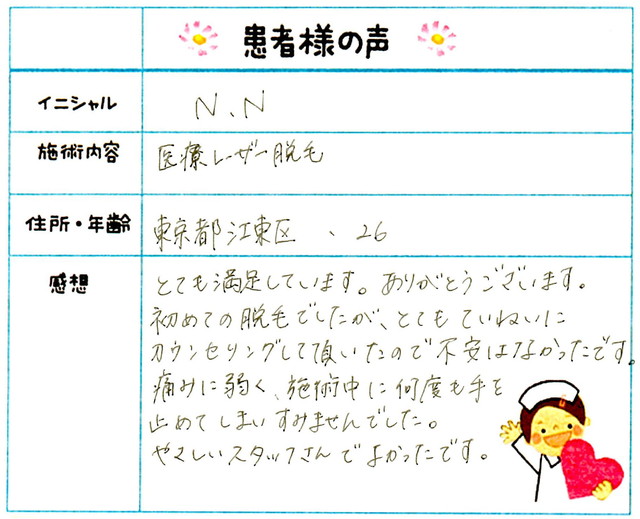 患者様の声
イニシャル N、N
施術内容 医療レーザー脱毛
住所・年齢 東京都江東区 、26
感想 とても満足しています。ありがとうございます。
初めての脱毛でしたが、とてもていねいに
カウンセリングして頂いたので不安はなかったです。
痛みに弱く、施術中に何度も手を
止めてしまいすみませんでした。
やさしいスタッフさんでよかったです。